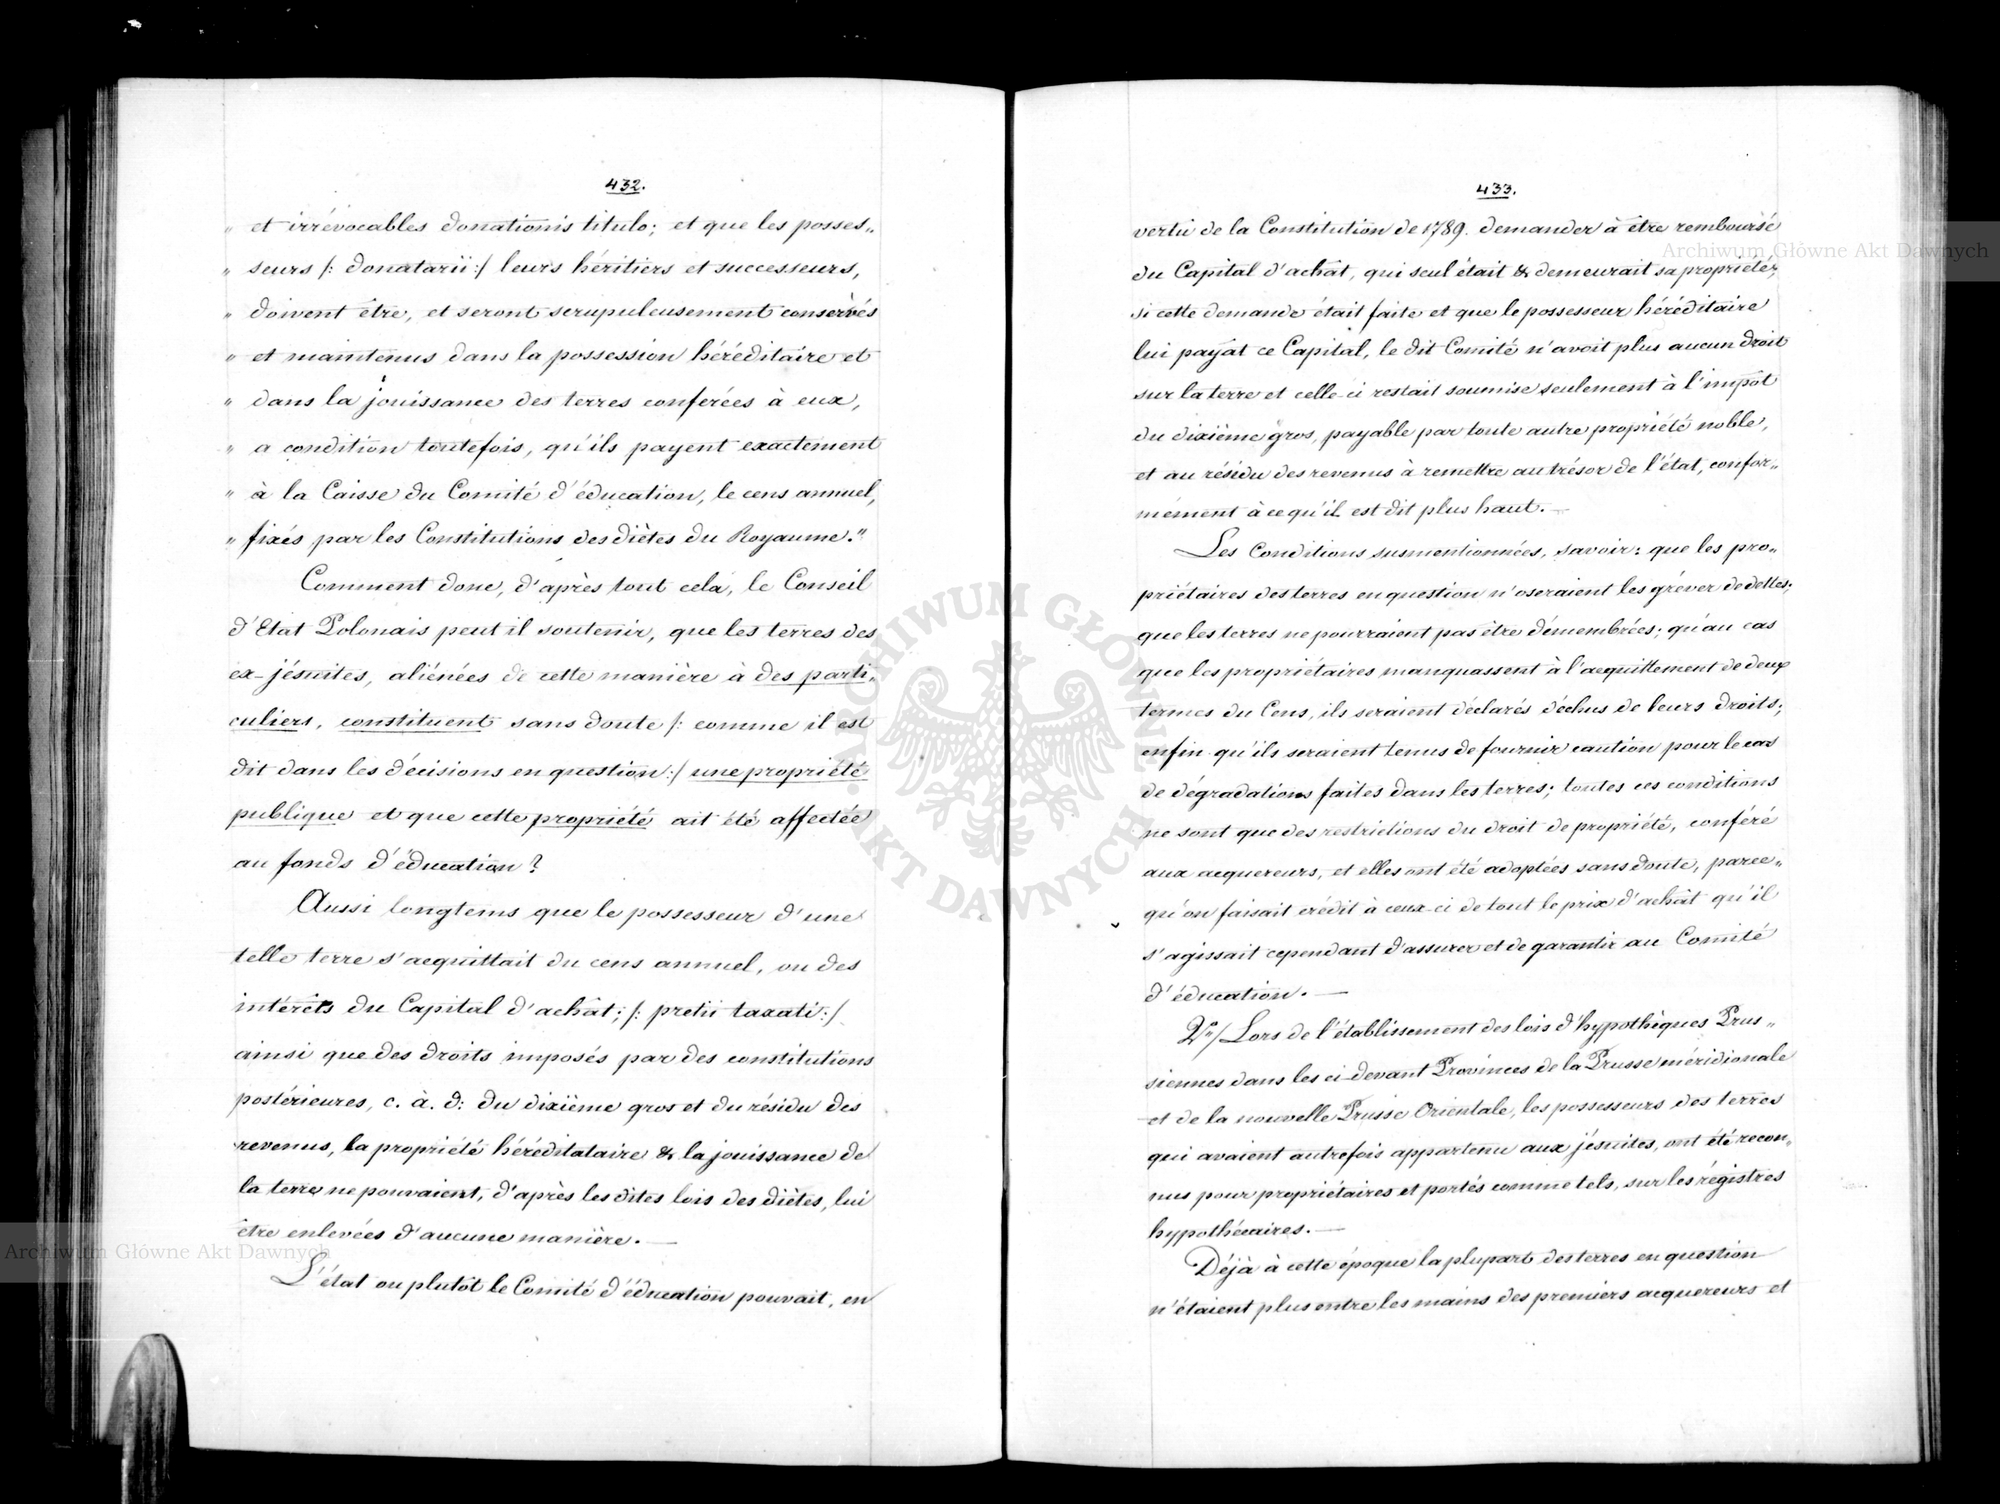 432.
„ et irrévocables donationis titulo; et que les posses„
„ seurs /: donatarii :/ leurs héritiers et successeurs,
„ doivent être, et seront scrupuleusement conservés
„ et maintenus dans la possession héréditaire et
„ dans la jouissance des terres conférées à eux,
„ a condition toutefois, qu'ils payent exactement
„ à la Caisse du Comité d'éducation, le cens annuel,
„ fixés par les Constitutions des diètes du Royaume."
Comment donc, d'après tout cela, le Conseil
d'Etat Polonais peut il soutenir, que les terres des
ex-jésuites, aliénées de cette manière à des parti„
culiers, constituent sans doute /: comme il est
dit dans les décisions en question :/ une propriété
publique et que cette propriété ait été affectée
au fonds d'éducation?
Aussi longtems que le possesseur d'une
telle terre s'acquittait du cens annuel, ou des
intérêts du Capital d'achât; /: pretii taxati :/
ainsi que des droits imposés par des constitutions
postérieures, c. à. d: du dixième gros et du résidu des
revenus, la propriété héréditataire & la jouissance de
la terre ne pouvaient, d'après les dites lois des diètes, lui
être enlevées d'aucune manière. —
L'état ou plutôt le Comité d'éducation pouvait, en
433.
vertu de la Constitution de 1789. demander à être remboursé
du Capital d'achât, qui seul était & demeurait sa propriété;
si cette demande était faite et que le possesseur héréditaire
lui payât ce Capital, le dit Comité n'avoit plus aucun droit
sur la terre et celle-ci restait soumise seulement à l'impôt
du dixième gros, payable par toute autre propriété noble,
et au résidu des revenus à remettre au trésor de l'état, confor„
mément à ce qu'il est dit plus haut. —
Les Conditions susmentionnées, savoir: que les pro„
priétaires des terres en question n'oseraient les gréver de dettes;
que les terres ne pourraient pas être démembrées; qu'au cas
que les propriétaires manquassent à l'acquittement de deux
termes du Cens, ils seraient déclarés déchus de leurs droits;
enfin qu'ils seraient tenus de fournir caution pour le cas
de dégradations faites dans les terres; toutes ces conditions
ne sont que des restrictions du droit de propriété, conféré
aux acquereurs, et elles ont été adoptées sans doute, parce„
qu'on faisait crédit à ceux-ci de tout le prix d'achât qu'il
s'agissait cependant d'assurer et de garantir au Comité
d'éducation. —
V°/ Lors de l'établissement des lois d'hypothèques Prus„
siennes dans les ci-devant Provinces de la Prusse méridionale
et de la nouvelle Prusse Orientale, les possesseurs des terres
qui avaient autrefois appartenu aux jésuites, ont été recon„
nus pour propriétaires et portés comme tels, sur les régistres
hypothécaires. —
Déjà à cette époque la plupart des terres en question
n'étaient plus entre les mains des premiers acquereurs et
Archiwum Główne Akt Dawnych
Archiwum Główne Akt Dawnych
ARCHIWUM GŁÓWNE AKT DAWNYCH